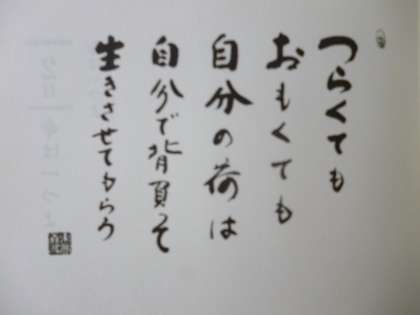 つらくても
おもくても
自分の荷は
自分で背負って
生きさせてもらう